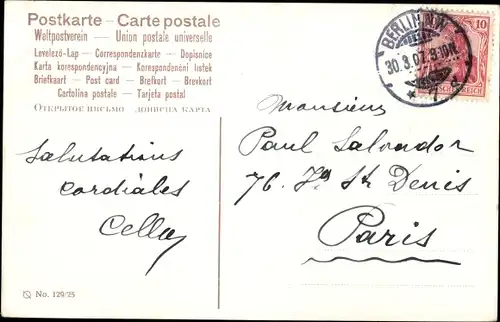 Postkarte – Carte postale
Weltpostverein — Union postale universelle
Levelező-Lap — Correspondenzkarte — Dopisnice
Karta korespondencyjna — Korespondenční lístek
Briefkaart — Post card — Brefkort — Brevkort
Cartolina postale — Tarjeta postal
Открытое письмо Дописна карта
BERLIN
30.3.07
10
Monsieur
Paul Salvador
76. Fg St Denis
Paris
Salutations
cordiales
Cella
No. 129/25